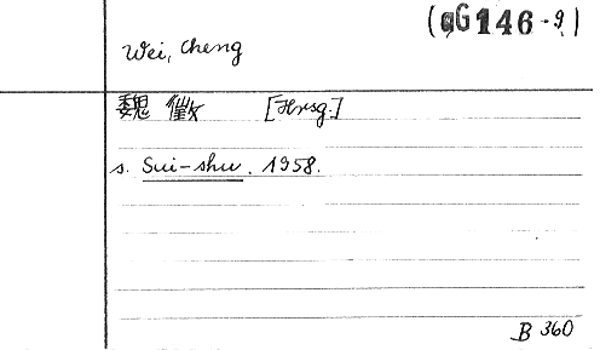 (qG146-9)
Wei, Cheng
魏 徵 [Hrsg.]
s. Sui-shu. 1958.
B 360